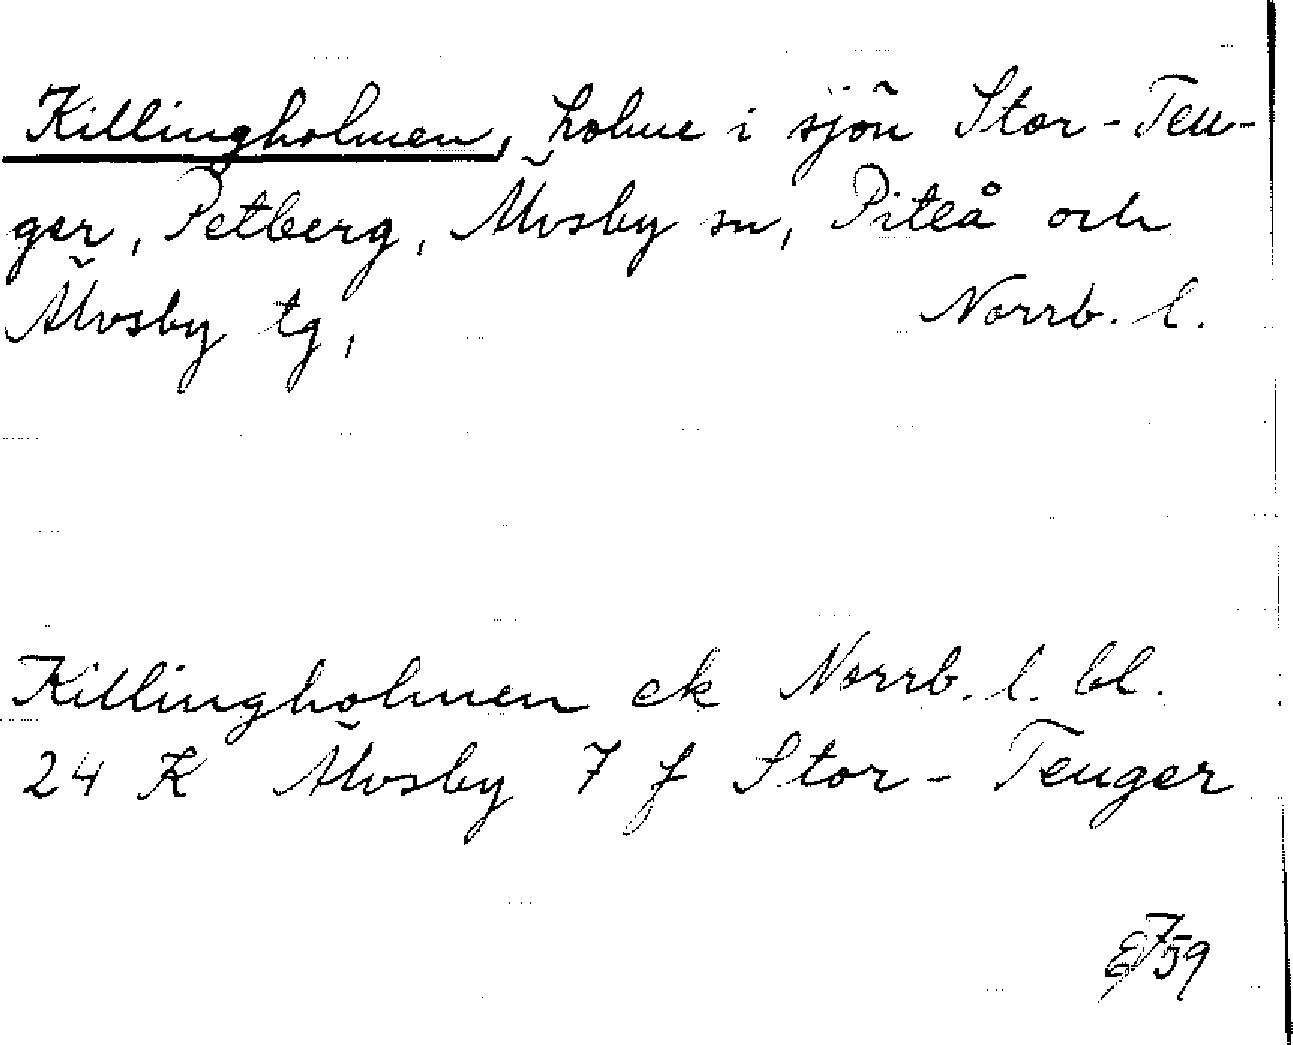 Killingholmen, holme i sjön Stor-Ten-
ger, Petberg, Älvsby sn, Piteå och
Älvsby tg, Norrb. l.
Killingholmen ek Norrb. l. bl.
24 K Älvsby 7 f Stor-Tenger